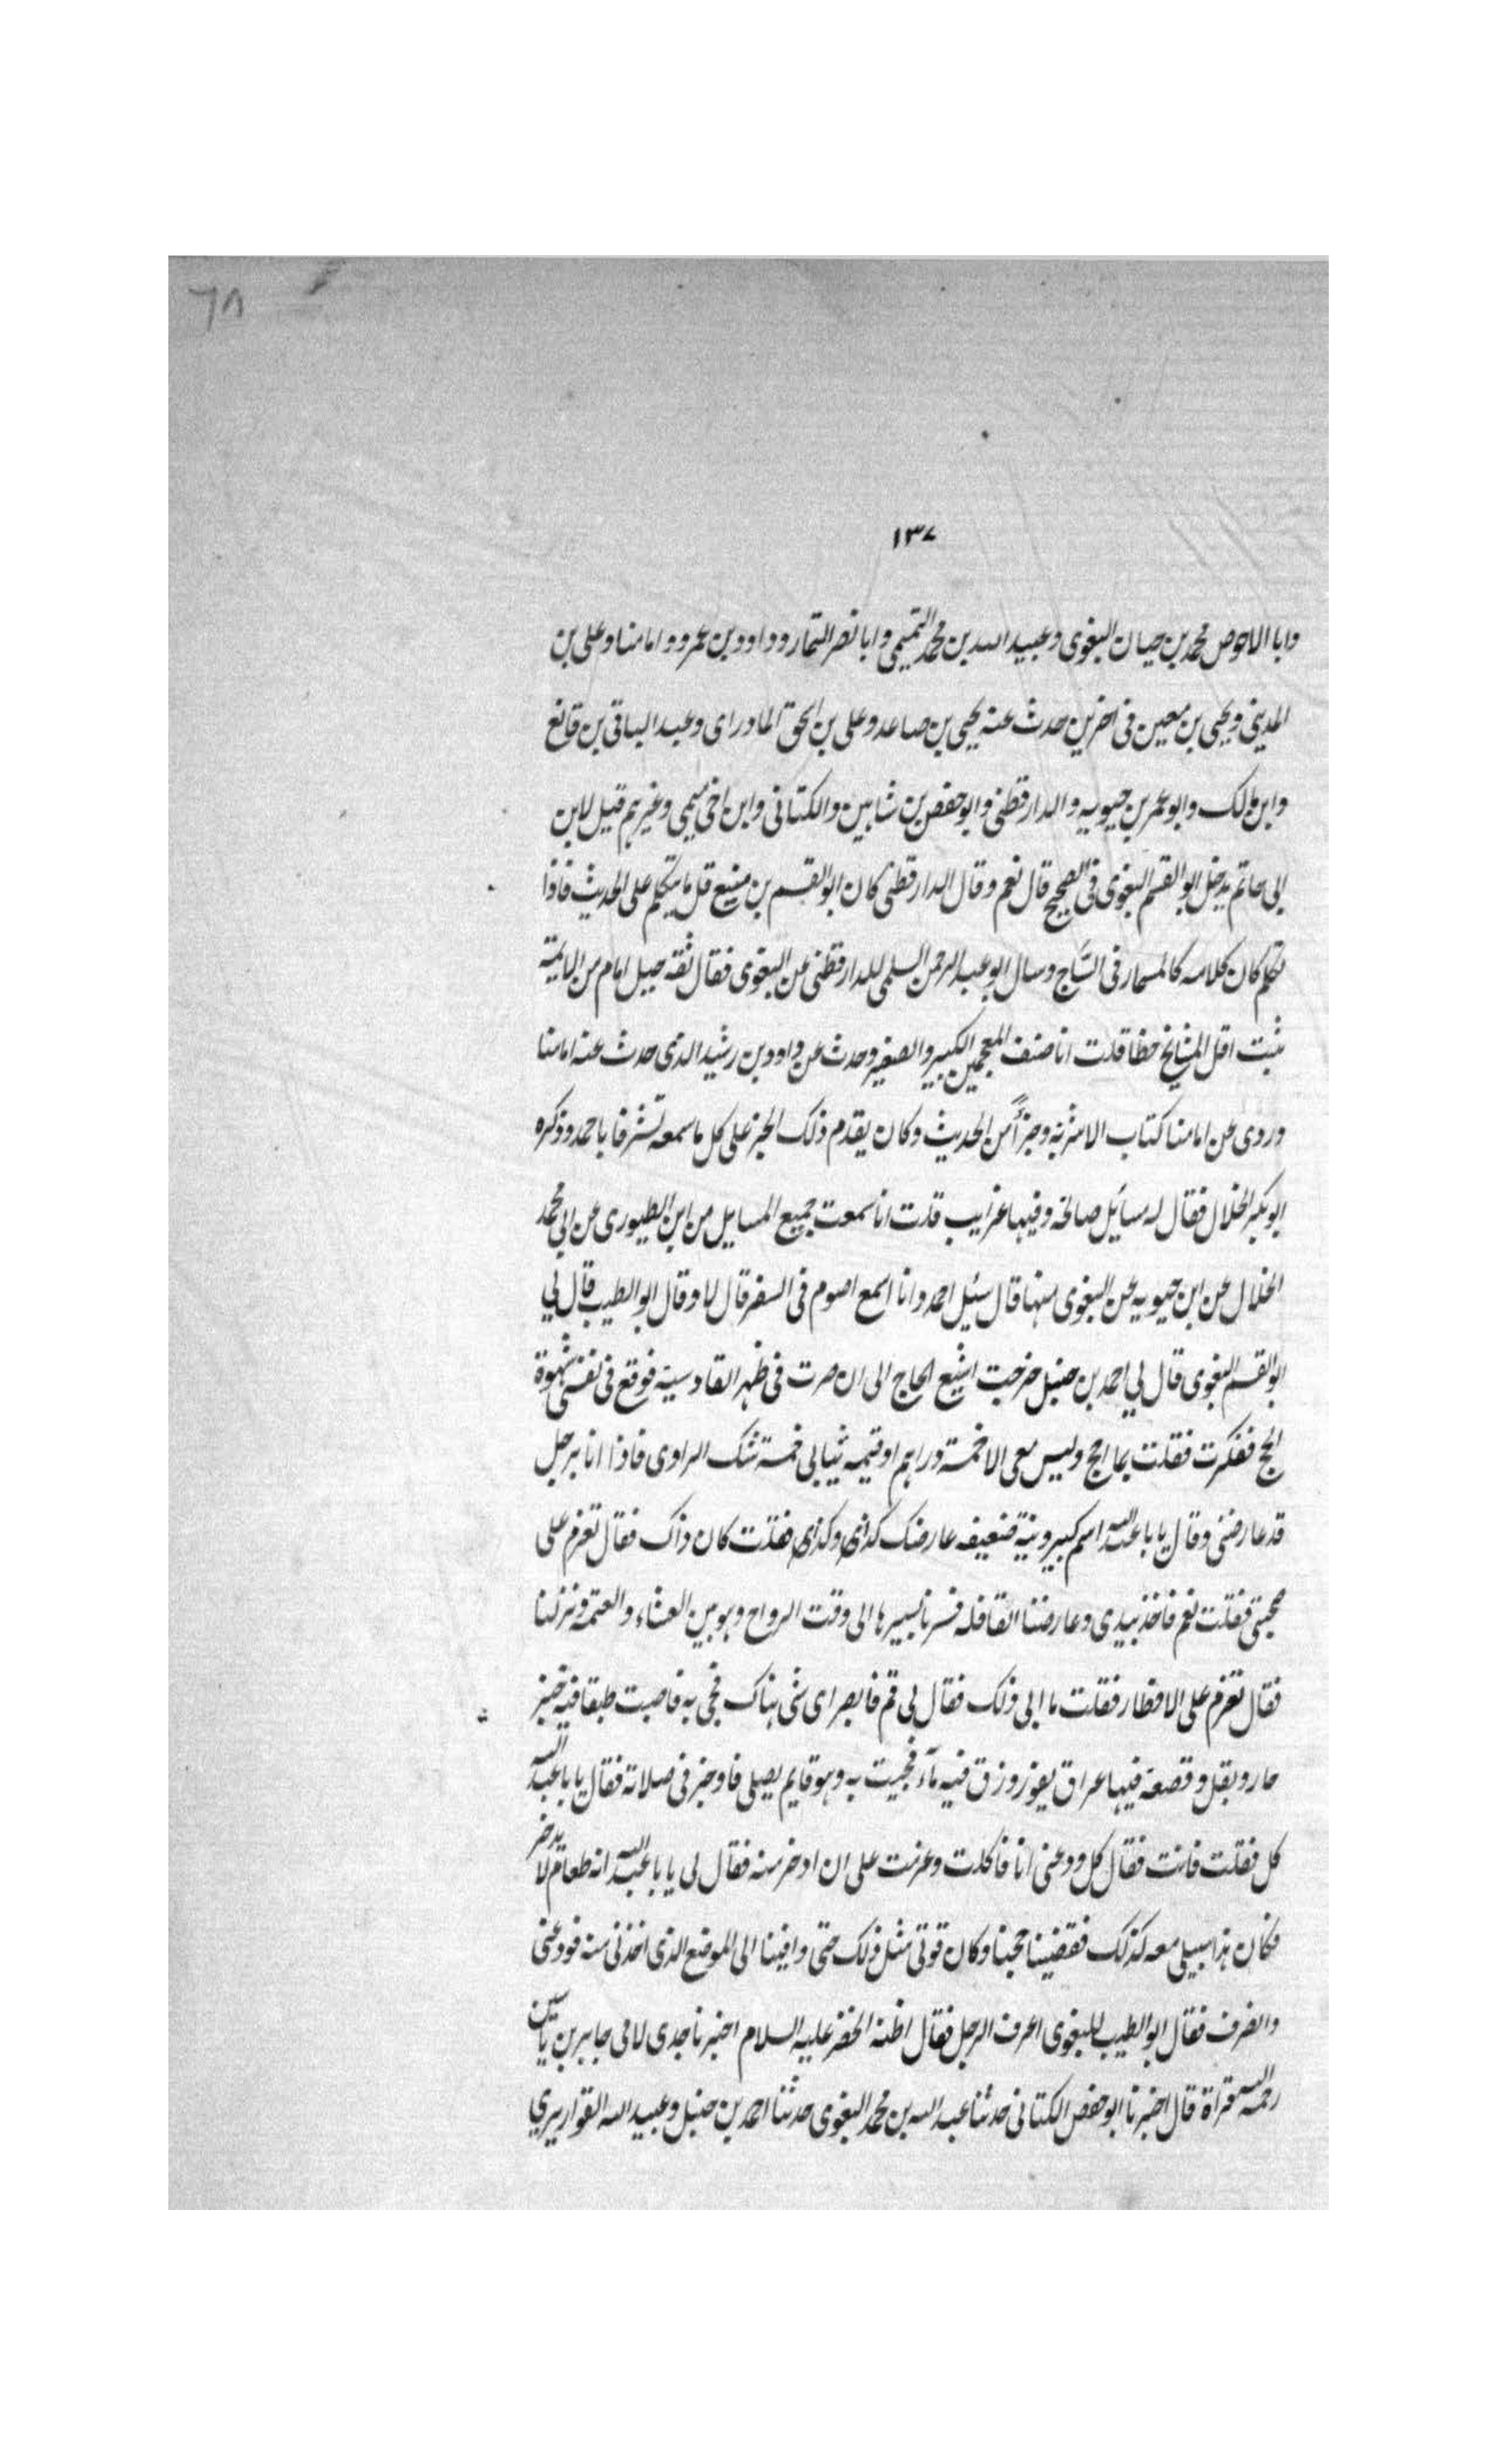 ٦٨
١٣٧
وابا الاحوص محمد بن حيان البغوى وعبيد الله بن محمد التميمى وابا نصر التمار وداود بن عمرو وامامنا وعلى بن
المدينى ويحيى بن معين فى اخرين حدث عنه يحيى بن صاعد وعلى بن اسحق المادراى وعبد الباقى بن قانع
وابن مالك وابو عمر بن حيويه والدارقطنى وابو حفص بن شاهين والكتانى وابن اخى ميمى وغيرهم قيل لابن
ابى حاتم يدخل ابو القسم البغوى فى الصحيح قال نعم وقال الدارقطنى كان ابو القسم بن منيع قل ما يتكلم على الحديث فاذا
تكلم كان كلامه كالمسمار فى الساج وسال ابو عبد الرحمن السلمى للدارقطنى عن البغوى فقال ثقة جبل امام من الايمة
ثبت اقل المشايخ خطا قلت انا صنف المعجمين الكبير والصغير وحدث عن داود بن رشيد الذى حدث عنه امامنا
وروى عن امامنا كتاب الاشربة وجزأ من الحديث وكان يقدم ذلك الجز على كل ما سمعه تشرفا باحمد وذكره
ابو بكر الخلال فقال له مسائل صالحة وفيها غرايب قلت انا سمعت جميع المسايل من ابن الطيورى عن ابى محمد
الخلال عن ابن حيويه عن البغوى منها قال سئيل احمد وانا اسمع اصوم فى السفر قال لا وقال ابو الطيب قال لي
ابو القسم البغوى قال لي احمد بن حنبل خرجت اشيع الحاج الى ان صرت فى ظهر القادسية فوقع فى نفسى شهوة
الحج ففكرت فقلت بما احج وليس معى الا خمسة دراهم او قيمه ثيابى خمسة شك الراوى فاذا انا برجل
قد عارضنى وقال يا با عبد الله اسم كبير ونية ضعيفه عارضك كذى وكذى فقلت كان ذاك فقال تعزم على
صحبتى فقلت نعم فاخذ بيدى وعارضنا القافله فسرنا بسيرها الى وقت الرواح وهو بين العشاء والعتمة ونزلنا
فقال تعزم على الافطار فقلت ما ابى ذلك فقال لي قم فابصر اى شى هناك فجى به فاصبت طبقا فيه خبز
حار وبقل وقصعة فيها عراق يفور وزق فيه مآء فجيت به وهو قايم يصلى فاوجز فى صلاته فقال يا با عبد الله
كل فقلت فانت فقال كل ودعنى انا فاكلت وعزمت على ان ادخر منه فقال لى يا با عبد الله انه طعام لا يدخر
فكان هذا سبيلى معه كذلك فقضينا حجنا وكان قوتى مثل ذلك حتى وافينا الى الموضع الذى اخذنى منه فودعنى
وانصرف فقال ابو الطيب للبغوى اعرف الرجل فقال اظنه الخضر عليه السلام اخبرنا جدى لامى جابر بن ياسين
رحمه الله قراة قال اخبرنا ابو حفص الكتانى حدثنا عبد الله بن محمد البغوى حدثنا احمد بن حنبل وعبيد الله القواريري